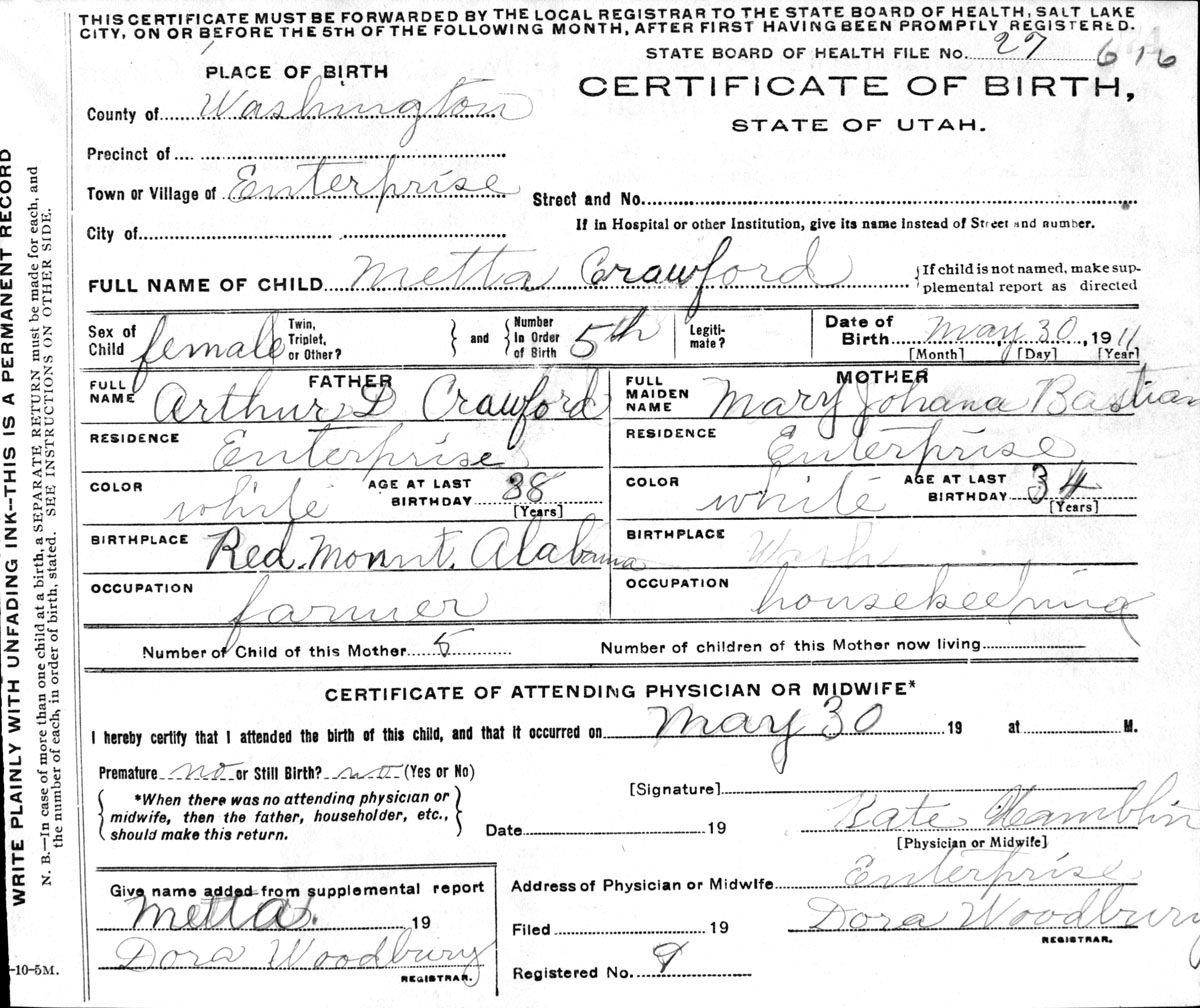 THIS CERTIFICATE MUST BE FORWARDED BY THE LOCAL REGISTRAR TO THE STATE BOARD OF HEALTH, SALT LAKE
CITY, ON OR BEFORE THE 5TH OF THE FOLLOWING MONTH, AFTER FIRST HAVING BEEN PROMPTLY REGISTERED.
STATE BOARD OF HEALTH FILE No. 27 616
PLACE OF BIRTH
CERTIFICATE OF BIRTH,
STATE OF UTAH.
County of Washington
Precinct of
Town or Village of Enterprise
Street and No.
City of
If in Hospital or other Institution, give its name instead of Street and number.
FULL NAME OF CHILD Metta Crawford
{If child is not named, make sup-
plemental report as directed
Sex of Child female
Twin, Triplet, or Other?
and
Number In Order of Birth 5th
Legiti-mate?
Date of Birth May 30, 1911
[Month] [Day] [Year]
FATHER
FULL NAME Arthur D Crawford
MOTHER
FULL MAIDEN NAME Mary Johana Bastian
RESIDENCE Enterprise
RESIDENCE Enterprise
COLOR white AGE AT LAST BIRTHDAY 38 [Years]
COLOR white AGE AT LAST BIRTHDAY 34 [Years]
BIRTHPLACE Red. Mount. Alabama
BIRTHPLACE Wash
OCCUPATION farmer
OCCUPATION housekeeping
Number of Child of this Mother 5 Number of children of this Mother now living
CERTIFICATE OF ATTENDING PHYSICIAN OR MIDWIFE*
I hereby certify that I attended the birth of this child, and that it occurred on May 30 19 at M.
Premature no or Still Birth? no (Yes or No)
{*When there was no attending physician or
midwife, then the father, householder, etc.,
should make this return.}
[Signature]
Date 19 Kate Hamblin
[Physician or Midwife]
Give name added from supplemental report
Metta. 19
Dora Woodbury
REGISTRAR.
Address of Physician or Midwife Enterprise
Filed 19 Dora Woodbury
REGISTRAR.
Registered No. 9
-10-5M.
WRITE PLAINLY WITH UNFADING INK--THIS IS A PERMANENT RECORD
N. B.—In case of more than one child at a birth, a SEPARATE RETURN must be made for each, and
the number of each, in order of birth, stated. SEE INSTRUCTIONS ON OTHER SIDE.